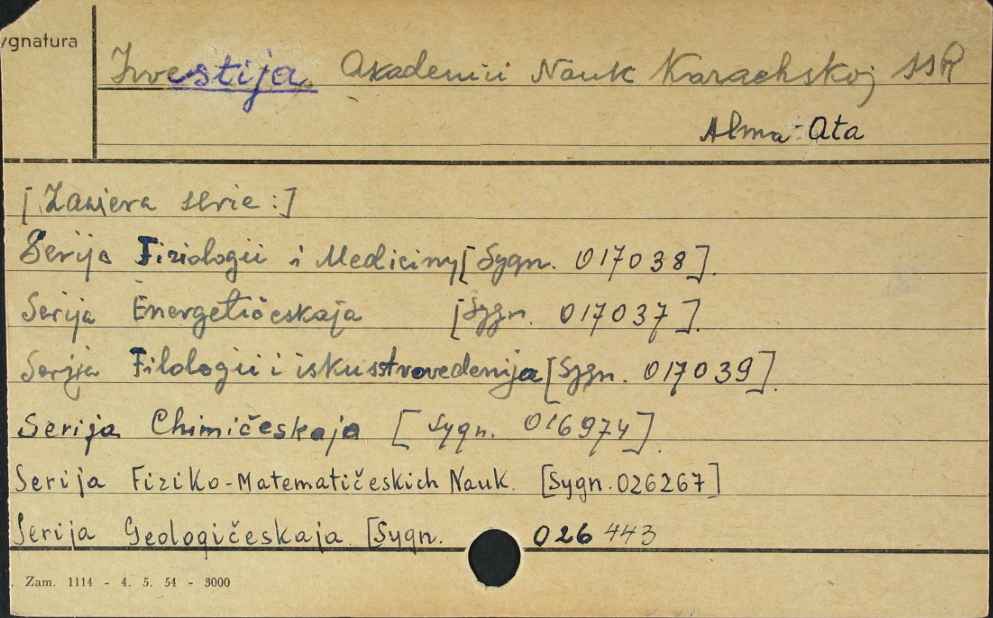 ygnatura
Izvestija Akademii Nauk Kazachskoj SSR
Alma-Ata
[Zawiera serie:]
Serija Fiziologii i Mediciny [Sygn. 017038].
Serija Energetičeskaja [Sygn. 017037].
Serija Filologii i iskusstvovedenija [Sygn. 017039].
Serija Chimičeskaja [Sygn. 016974].
Serija Fiziko-Matematičeskich Nauk. [Sygn. 026267]
Serija Geologičeskaja [Sygn. 026443
Zam. 1114 - 4. 5. 54 - 3000